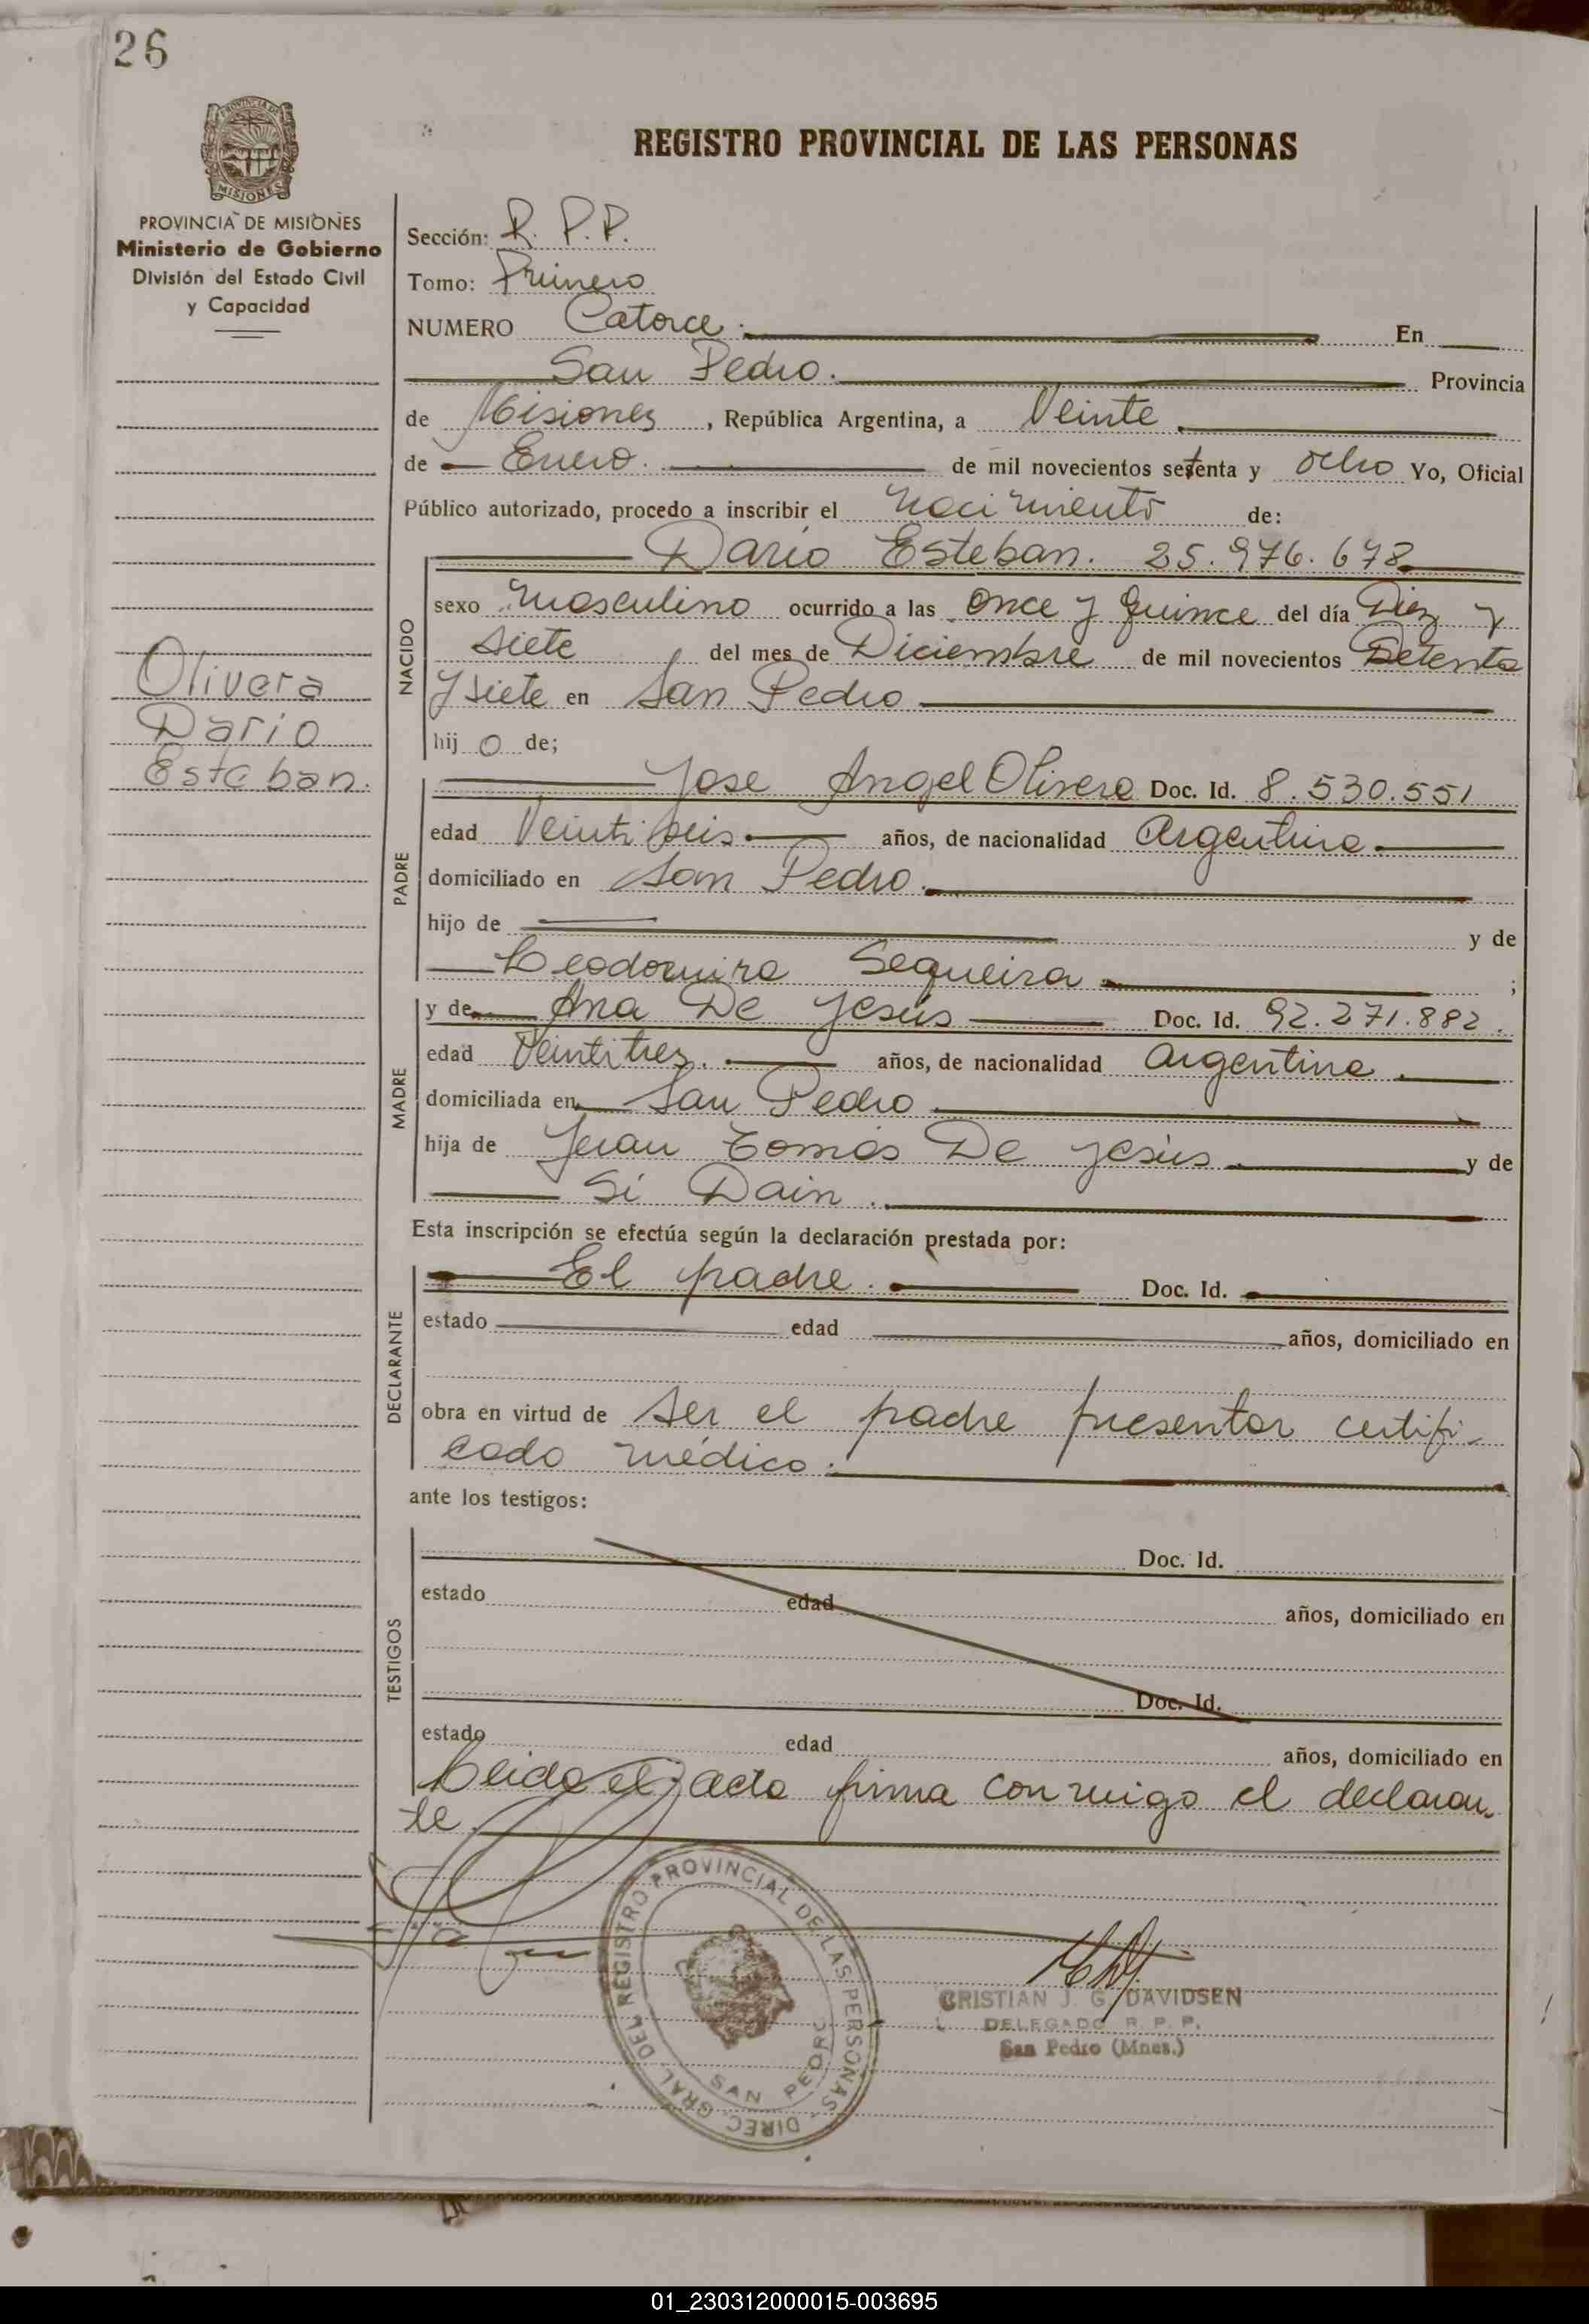 26
PROVINCIA DE MISIONES
REGISTRO PROVINCIAL DE LAS PERSONAS
PROVINCIA DE MISIONES
Ministerio de Gobierno
División del Estado Civil
y Capacidad
Sección: R. P. P.
Tomo: Primero
NUMERO Catorce. En
San Pedro. Provincia
de Misiones, República Argentina, a Veinte
de Enero. de mil novecientos setenta y ocho Yo, Oficial
Público autorizado, procedo a inscribir el nacimiento de:
Olivera
Dario
Esteban.
NACIDO
Dario Esteban. 25.976.678
sexo masculino ocurrido a las once y quince del día Diez y
siete del mes de Diciembre de mil novecientos Setenta
y siete en San Pedro
hij o de;
PADRE
Jose Angel Olivera Doc. Id. 8.530.551
edad Veintiseis años, de nacionalidad Argentina.
domiciliado en San Pedro.
hijo de y de
Leodomira Sequeira ;
MADRE
y de Ana De Jesús Doc. Id. 92.271.882.
edad Veintitres. años, de nacionalidad Argentina.
domiciliada en San Pedro
hija de Juan Tomás De Jesús y de
Si Dain.
Esta inscripción se efectúa según la declaración prestada por:
DECLARANTE
El padre. Doc. Id.
estado edad años, domiciliado en
obra en virtud de ser el padre presentar certifi-
cado médico.
ante los testigos:
TESTIGOS
Doc. Id.
estado edad años, domiciliado en
Doc. Id.
estado edad años, domiciliado en
Leida el acta firma conmigo el declaran-
te
DIREC. GRAL. DEL REGISTRO PROVINCIAL DE LAS PERSONAS
SAN PEDRO
CRISTIAN J. G. DAVIDSEN
DELEGADO R. P. P.
San Pedro (Mnes.)
01_230312000015-003695